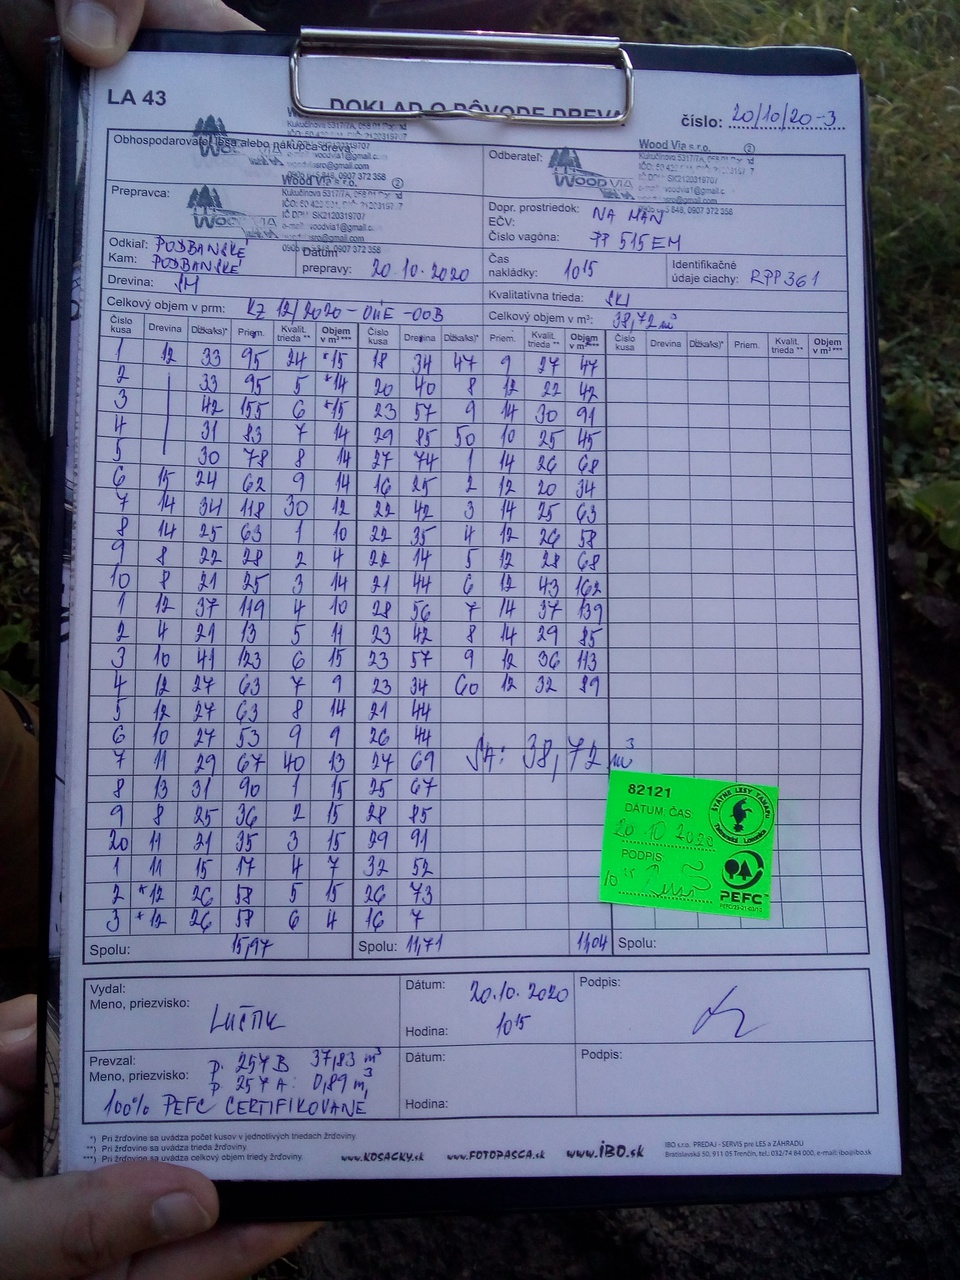 LA 43
DOKLAD O PÔVODE DREVA
číslo: 20/10/20-3
Obhospodarovateľ lesa alebo nákupca dreva:
Wood Via s.r.o. 2
WOOD VIA
Odberateľ:
Wood Via s.r.o. 2
WOOD VIA
Prepravca:
Wood Via s.r.o. 2
WOOD VIA
Kukučínova 5317/7A
0905 848, 0907 372 358
Dopr. prostriedok: NA MAN
EČV:
Číslo vagóna: PP 515EM
Odkiaľ: PODBANSKÉ
Kam: PODBANSKÉ
Dátum prepravy: 20.10.2020
Čas nakládky: 10 15
Identifikačné údaje ciachy: RPP361
Drevina: SM
Kvalitatívna trieda:
Celkový objem v prm: KZ 12/2020-OÚE-OOB
Celkový objem v m³: 38,72 m³
Číslo kusa Drevina Dĺžka(ks)* Priem. Kvalit. trieda ** Objem v m³ *** Číslo kusa Drevina Dĺžka(ks)* Priem. Kvalit. trieda ** Objem v m³ *** Číslo kusa Drevina Dĺžka(ks)* Priem. Kvalit. trieda ** Objem v m³ ***
1 12 33 95 24 *15 18 34 47 9 27 47
2 33 95 5 *14 20 40 8 12 22 42
3 42 155 6 *15 23 57 9 14 30 91
4 31 83 7 14 29 85 50 10 25 45
5 30 78 8 14 27 74 1 14 26 68
6 15 24 62 9 14 16 25 2 12 20 34
7 14 34 118 30 12 22 42 3 14 25 63
8 14 25 63 1 10 22 35 4 12 26 58
9 8 22 28 2 4 22 14 5 12 28 68
10 8 21 25 3 14 21 44 6 12 43 162
1 12 37 119 4 10 28 56 7 14 37 139
2 4 21 13 5 11 23 42 8 14 29 85
3 10 41 123 6 15 23 57 9 12 36 113
4 12 27 63 7 9 23 34 60 12 32 89
5 12 27 63 8 14 21 44
6 10 27 53 9 9 26 44
7 11 29 67 40 13 27 69
SA: 38,72 m³
8 13 31 90 1 15 25 67
9 8 25 36 2 15 28 85
20 11 21 35 3 15 29 91
1 11 15 17 4 7 32 52
2 *12 26 58 5 15 26 73
3 *12 26 58 6 4 16 7
Spolu: 15,97 Spolu: 11,71 11,04 Spolu:
82121
DÁTUM, ČAS:
20 10 2020
PODPIS
10 15
ŠTÁTNE LESY TANAPU
Tatranská Lomnica
PEFC
Vydal:
Meno, priezvisko:
Dátum: 20.10.2020
Hodina: 10 15
Podpis:
Prevzal:
Meno, priezvisko:
p. 257 B 37,83 m³
p. 257 A: 0,89 m³
100% PEFC CERTIFIKOVANÉ
Dátum:
Hodina:
Podpis:
*) Pri žrďovine sa uvádza počet kusov v jednotlivých triedach žrďoviny.
**) Pri žrďovine sa uvádza trieda žrďoviny.
***) Pri žrďovine sa uvádza celkový objem triedy žrďoviny.
www.KOSACKY.sk www.FOTOPASCA.sk www.iBO.sk
IBO s.r.o. PREDAJ - SERVIS pre LES a ZÁHRADU
Bratislavská 50, 911 05 Trenčín, tel.: 032/74 84 000, e-mail: ibo@ibo.sk